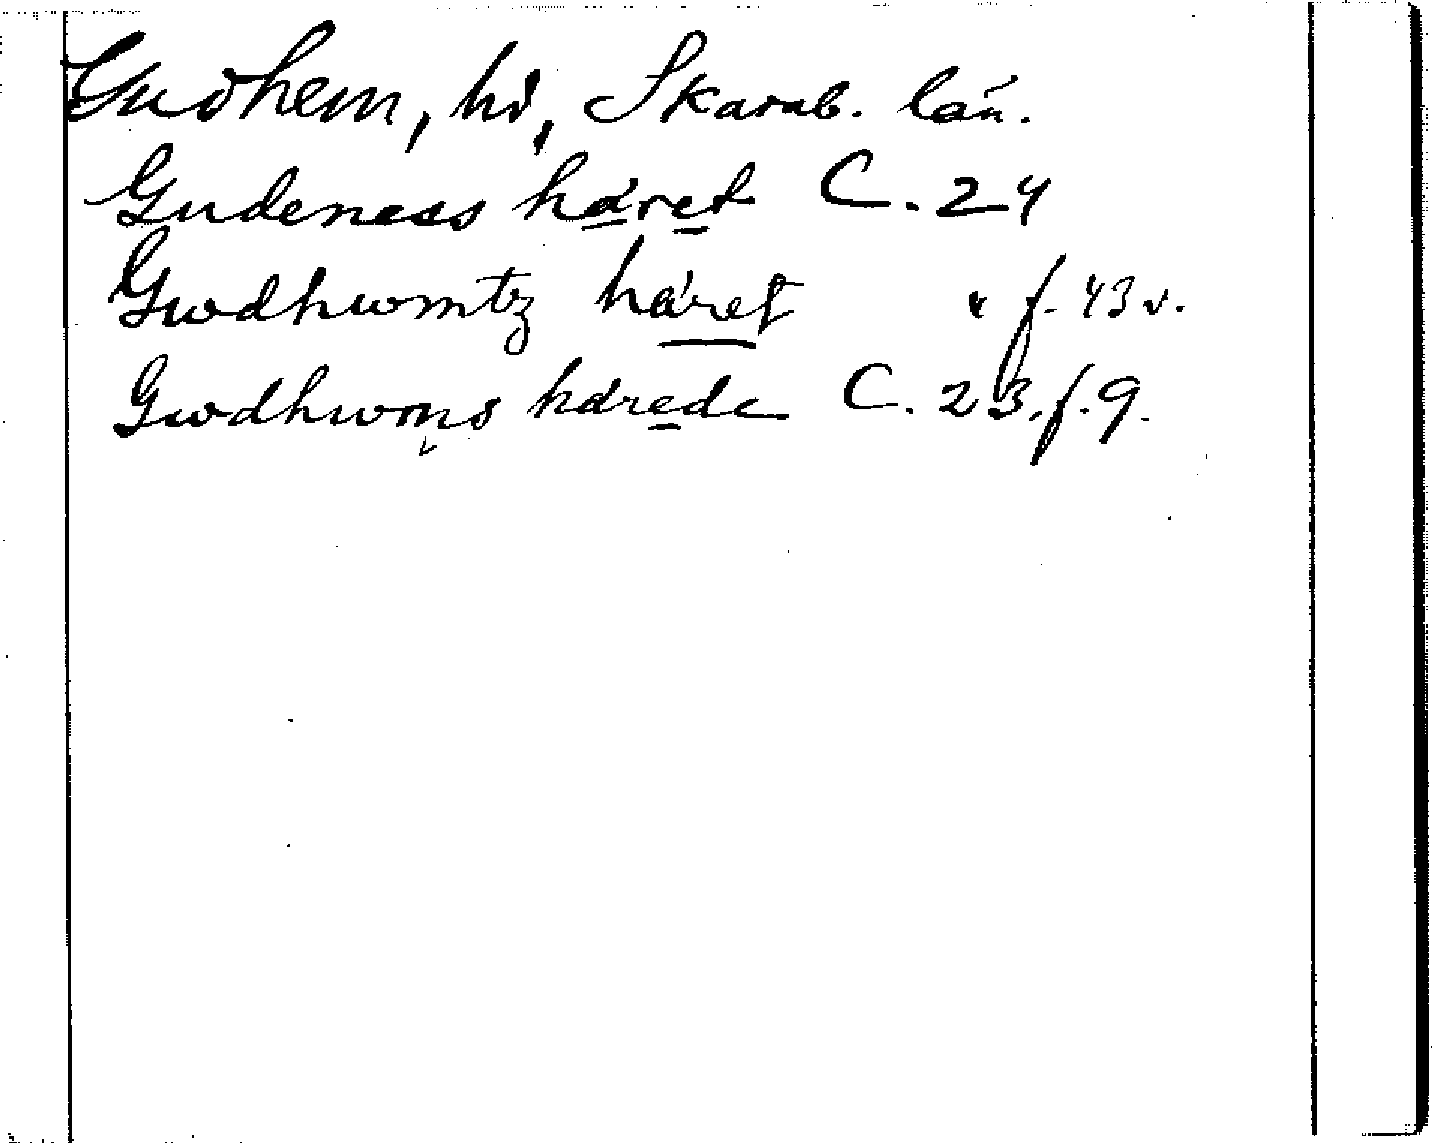 Gudhem, hd, Skarab. län.
Gudeness häret C. 24
Gwdhwmtz häret " f. 43 v.
Gwdhwms härede C. 23, f. 9.